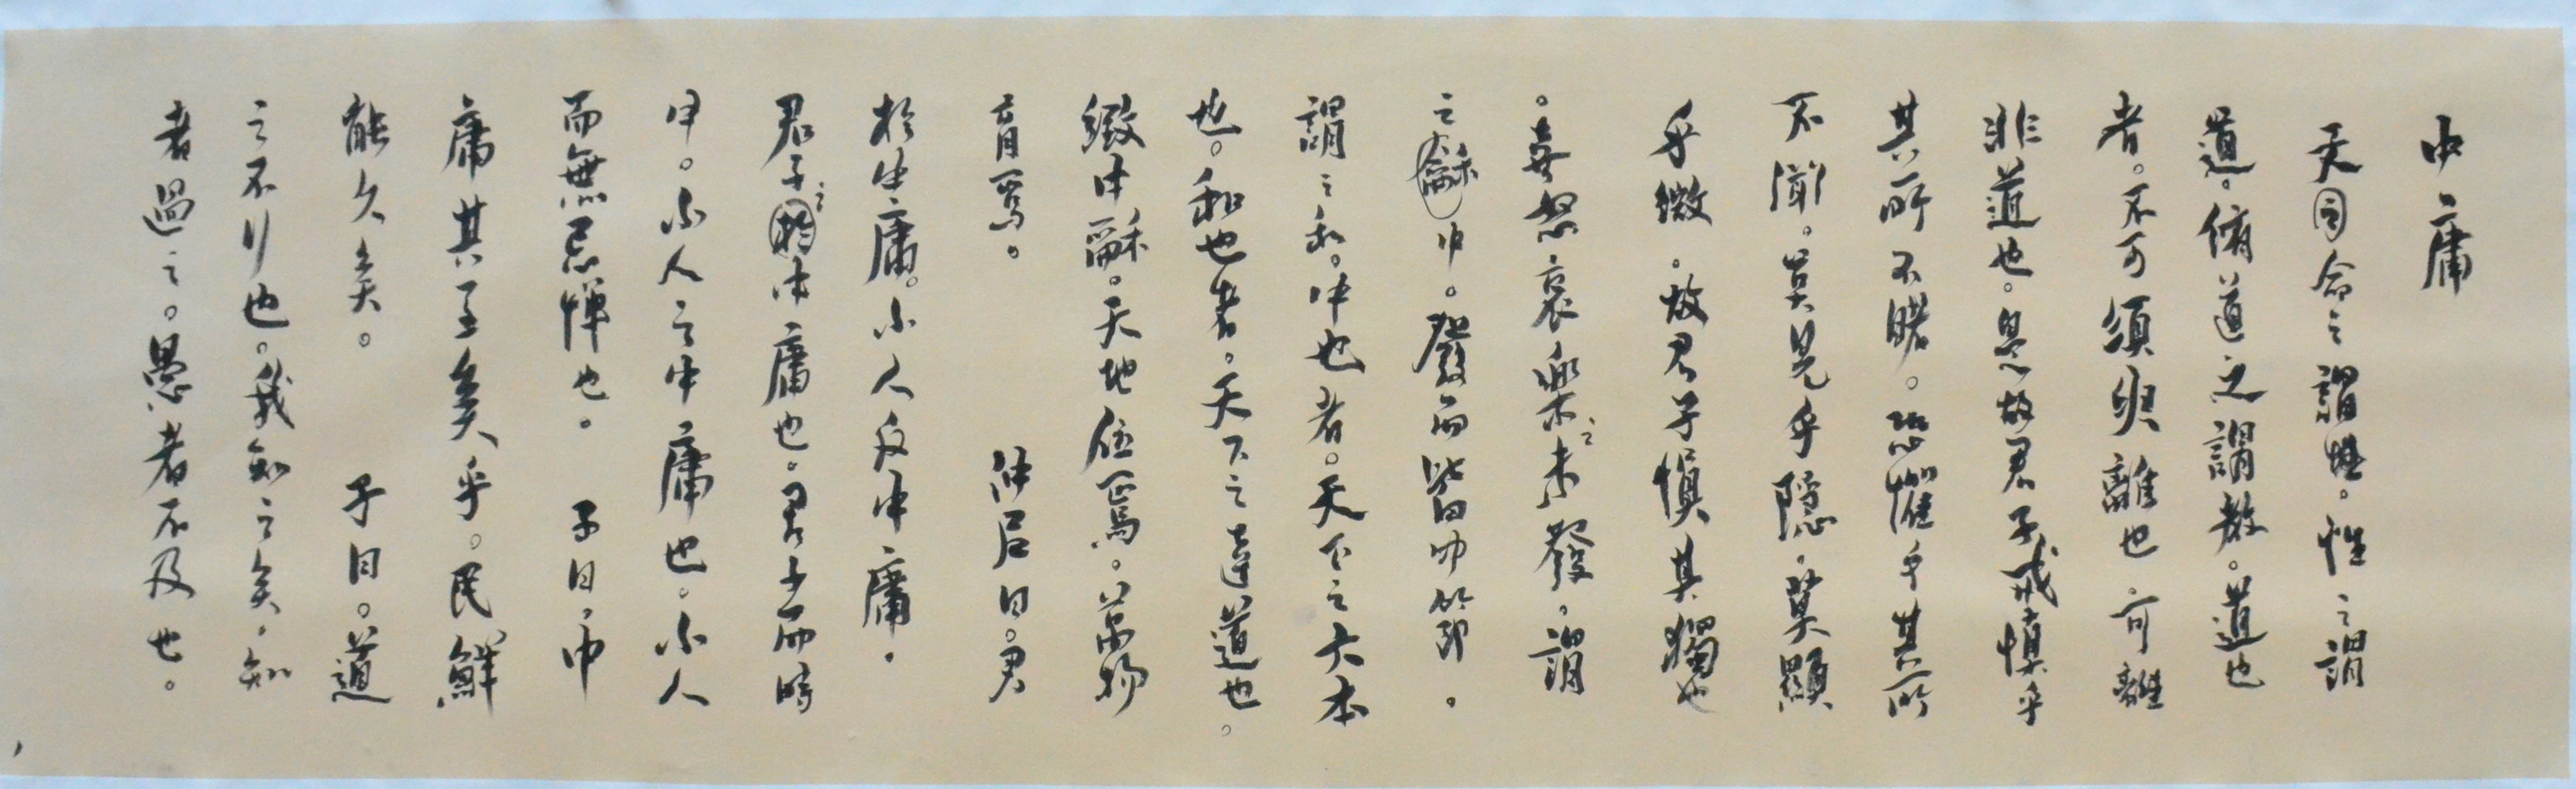 中庸
天命之謂性。性之謂
道。脩道之謂教。道也
者。不可須臾離也可離
非道也。是故君子戒慎乎
其所不睹。恐懼乎其所
不聞。莫見乎隱。莫顯
乎微。故君子慎其獨也
。喜怒哀樂之未發。謂
之中。發而皆中節。
謂之和。中也者。天下之大本
也。和也者。天下之達道也。
緻中龢。天地位焉。萬物
育焉。 仲尼曰。君
於生庸。小人反中庸。
君子之中庸也。君子而時
中。小人之中庸也。小人
而無忌憚也。 子曰。中
庸其至矣乎。民鮮
能久矣。 子曰。道
之不行也。我知之矣。知
者過之。愚者不及也。